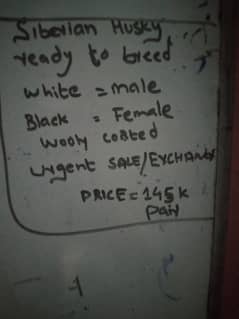 Siberian Husky
ready to breed
white = male
Black = Female
wooly coated
urgent SALE/EXCHANGE
PRICE = 145K
pair